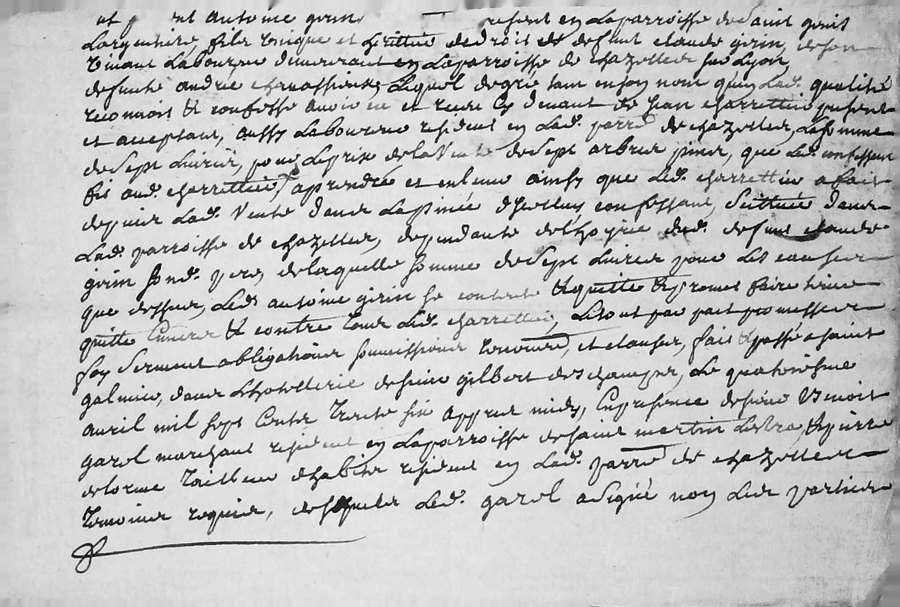 antoine girin resident en Laparroisse de saint genis
Largentiere, fils unique et heritier de droit de deffunt claude girin, de son
vivant Laboureur demeurant en Laparroisse de chazelles sur Lyon,
deffunte andrée Lequel degré tant en son nom qu'en Lad. qualité
reconnoit & confesse avoir eu et receu cy devant de Jean charrettier present
et acceptant, aussy Laboureur resident en Lad. parre de chazelles, La somme
de sept Livres, pour Le prix de la Vente de sept arbres pins, que Led. confessant
fit aud. charrettier, a prendre et enlever ainsy que Led. charrettier a fait
depuis Lad. Vente dans La pinée confessant, scituée dans
Lad. parroisse de chazelles, dependante de L'hoyrie dud. deffunt claude
girin son d. pere, de laquelle somme de sept Livres pour Les causes
que dessus, Led. antoine girin se contente & quitte & promet faire tenir
quitte envers & contre tous Led. charrettier, Le tout par pact promesses
foy serment obligations soumissions renonces, et clauses, fait & passé a saint
galmier, dans L'hotellerie de sieur gilbert deschamps, Le quatorzieme
avril mil sept Cents Trente six apprès midy, En presence de sieur Benoit
garel marchant resident en Laparroisse de saint martin Lestra, & pierre
delorme Tailleur d'habits resident en Lad. parre de chazelles
temoins requis, desquels Led. garel a signé non Les parties